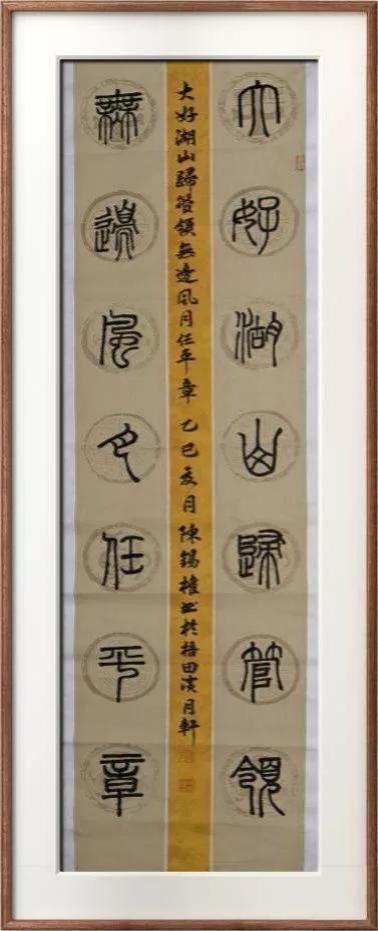 大好湖山歸管領
大好湖山歸管領無邊風月任平章 乙巳夏月 陳錫權書於梧田月軒
無邊風月任平章